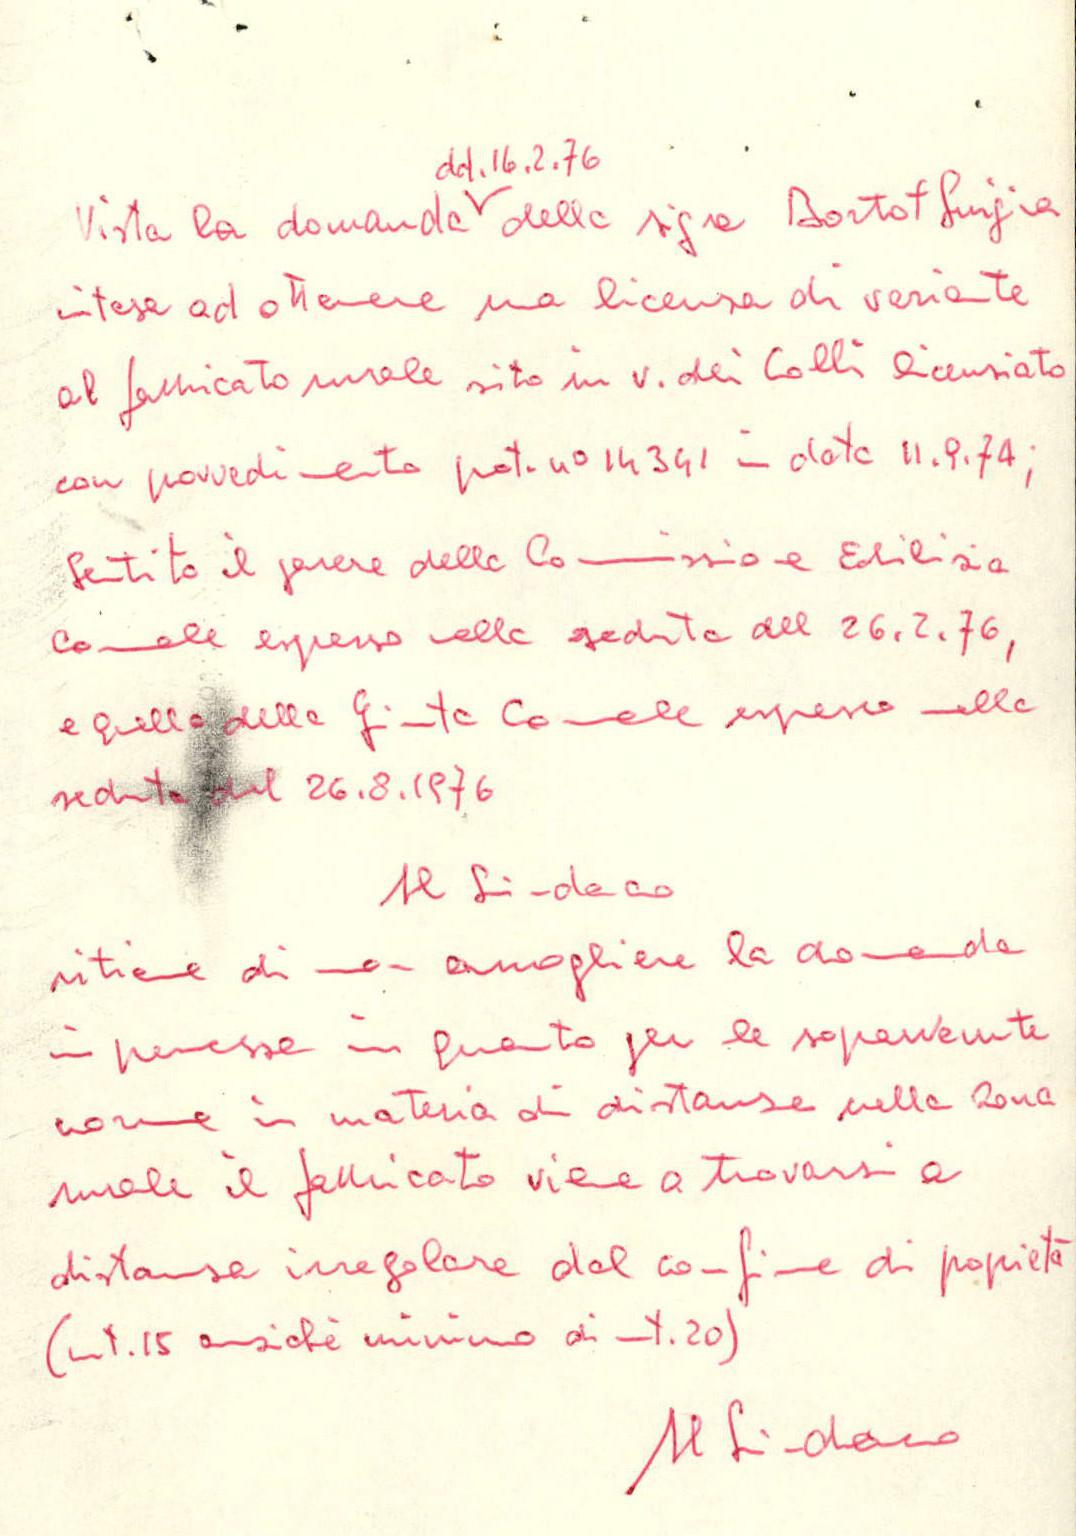 dd. 16.2.76
Vista la domanda della sig.ra Bortot Luigia
intesa ad ottenere una licenza di variante
al fabbricato rurale sito in v. dei Colli licenziato
con provvedimento prot. n° 14341 in data 11.9.74;
Sentito il parere della Commissione Edilizia
Com.ale espresso nella seduta del 26.2.76,
e quello della Giunta Com.ale espresso nella
seduta del 26.8.1976
Il Sindaco
ritiene di non accogliere la domanda
in premessa in quanto per le sopravvenute
norme in materia di distanze nella zona
rurale il fabbricato viene a trovarsi a
distanza irregolare dal confine di proprietà
(mt. 15 anzichè minimo di mt. 20)
Il Sindaco